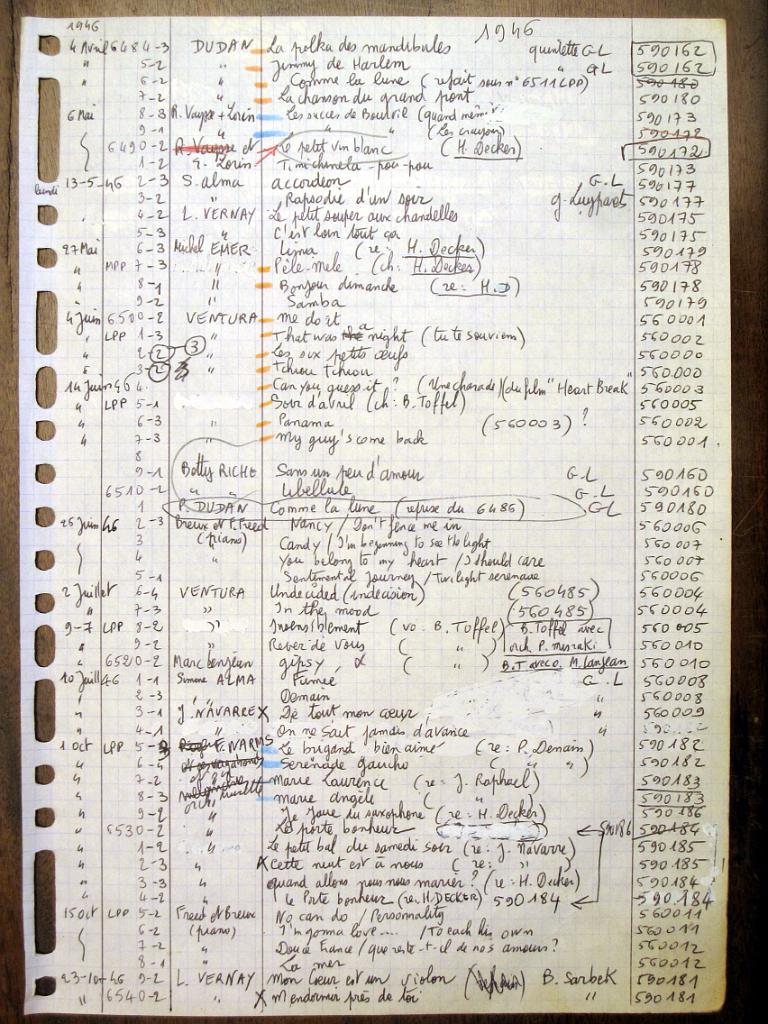 1946 1946
4 Avril 6484-3 DUDAN La polka des mandibules quintette G L 590162
" 5-2 " Jimmy de Harlem " G L 590162
" 6-2 " Comme la lune (refait sous n° 6511 LPP) 590180
" 7-2 " La chanson du grand pont 590180
6 Mai 8-3 R. Vaysse + Lorin Les succès de Bourvil (quand même 590173
9-1 " " " (Les crayons) 590172
6490-2 R. Vaysse et Le petit vin blanc (H. Decker) 590172
1-2 E. Lorin Timichinela-pou-pou 590173
lundi 13-5-46 2-3 S. alma accordéon G. L 590177
3-2 " Rapsodie d'un soir g. Luypaert 590177
" 4-2 L. VERNAY Le petit souper aux chandelles 590175
5-3 " C'est loin tout ça 590175
27 Mai 6-3 Michel EMER Lima (re: H. Decker) 590179
" MPP 7-3 " Pêle-Mêle (ch: H. Decker) 590178
" 8-1 " Bonjour dimanche (re: H.D) 590178
" 9-2 " Samba 590179
4 Juin 6500-2 VENTURA me do it 560001
" LPP 1-3 " That was the a night (tu te souviens) 560002
" 2-2 3 " Les six petits œufs 560000
" 3-2 3 " Tchiou Tchiou 560.000
14 Juin 46 4. Can you guess it? (Une charade) (du film "Heart Break" 560003
" LPP 5-1 Soir d'avril (ch: B. Toffel) 560005
" 6-3 " Panama (560003) ? 560002
" 7-3 " My guy's come back 560001.
8
9-1 Betty RICHE Sans un peu d'amour G. L 590160
6510-2 " " Libellule G. L 590160
1 P. DUDAN Comme la lune (refuse du 6486) GL 590180
25 Juin 46 2-3 Breux et F. Freed Nancy / Don't fence me in 560006
3 (piano) Candy / I'm beginning to see the light 560007
4 " You belong to my heart / I should care 560007
5-1 Sentimental Journey / Twilight serenade 560006
2 Juillet 6-4 VENTURA Undecided (indecision) (560485) 560004
" 7-3 " In the mood (560485) 560004
9-7 LPP 8-2 " Insensiblement (vo: B. Toffel) B. Toffel avec 560005
" 9-2 " Rever de vous ( " ) orch P. misraki 560010
" 6520-2 Marc Lanjean gipsy ( " ) B.T avec O. M. Lanjean 560010
10 Juill 46 1-1 Simone ALMA Fumée G. L 560008
" 2-3 " Demain " 560008
" 3-1 J. NAVARRE X De tout mon cœur, " 560009
" 4-1 " On ne sait jamais d'avance "
1 Oct LPP 5-3 E. NARMS Le brigand bien aimé (re: P. Denain) 590182
" 6-4 Serenade gaucho ( " " ) 590182
" 7-2 Marie Laurence (re: J. Raphael) 590183
" 8-3 orch. musette marie angèle ( " ) 590183
" 9-2 " Je joue du saxophone (re: H. Decker) 590186
" 6530-2 " Le porte bonheur 590186 590184
" 1-2 " Le petit bal du samedi soir (re: J. Navarre) 590185
" 2-3 " X cette nuit est à nous (re: " ) 590185
" 3-3 " quand allons nous nous marier? (re: H. Decker) 590184
" 4-2 " Le Porte bonheur (re. H. DECKER) 590184 590.184
15 Oct LPP 5-2 Freed et Breux No can do / Personnality 560011
6-2 (piano) I'm gonna love.... / To each his own 560011
7-2 " Douce France / que reste-t-il de nos amours? 560012
8-1 " La mer 560012
23-10-46 9-2 L. VERNAY Mon Cœur est un violon B. Sarbek 590181
" 6540-2 " X M'endormir près de toi " 590181